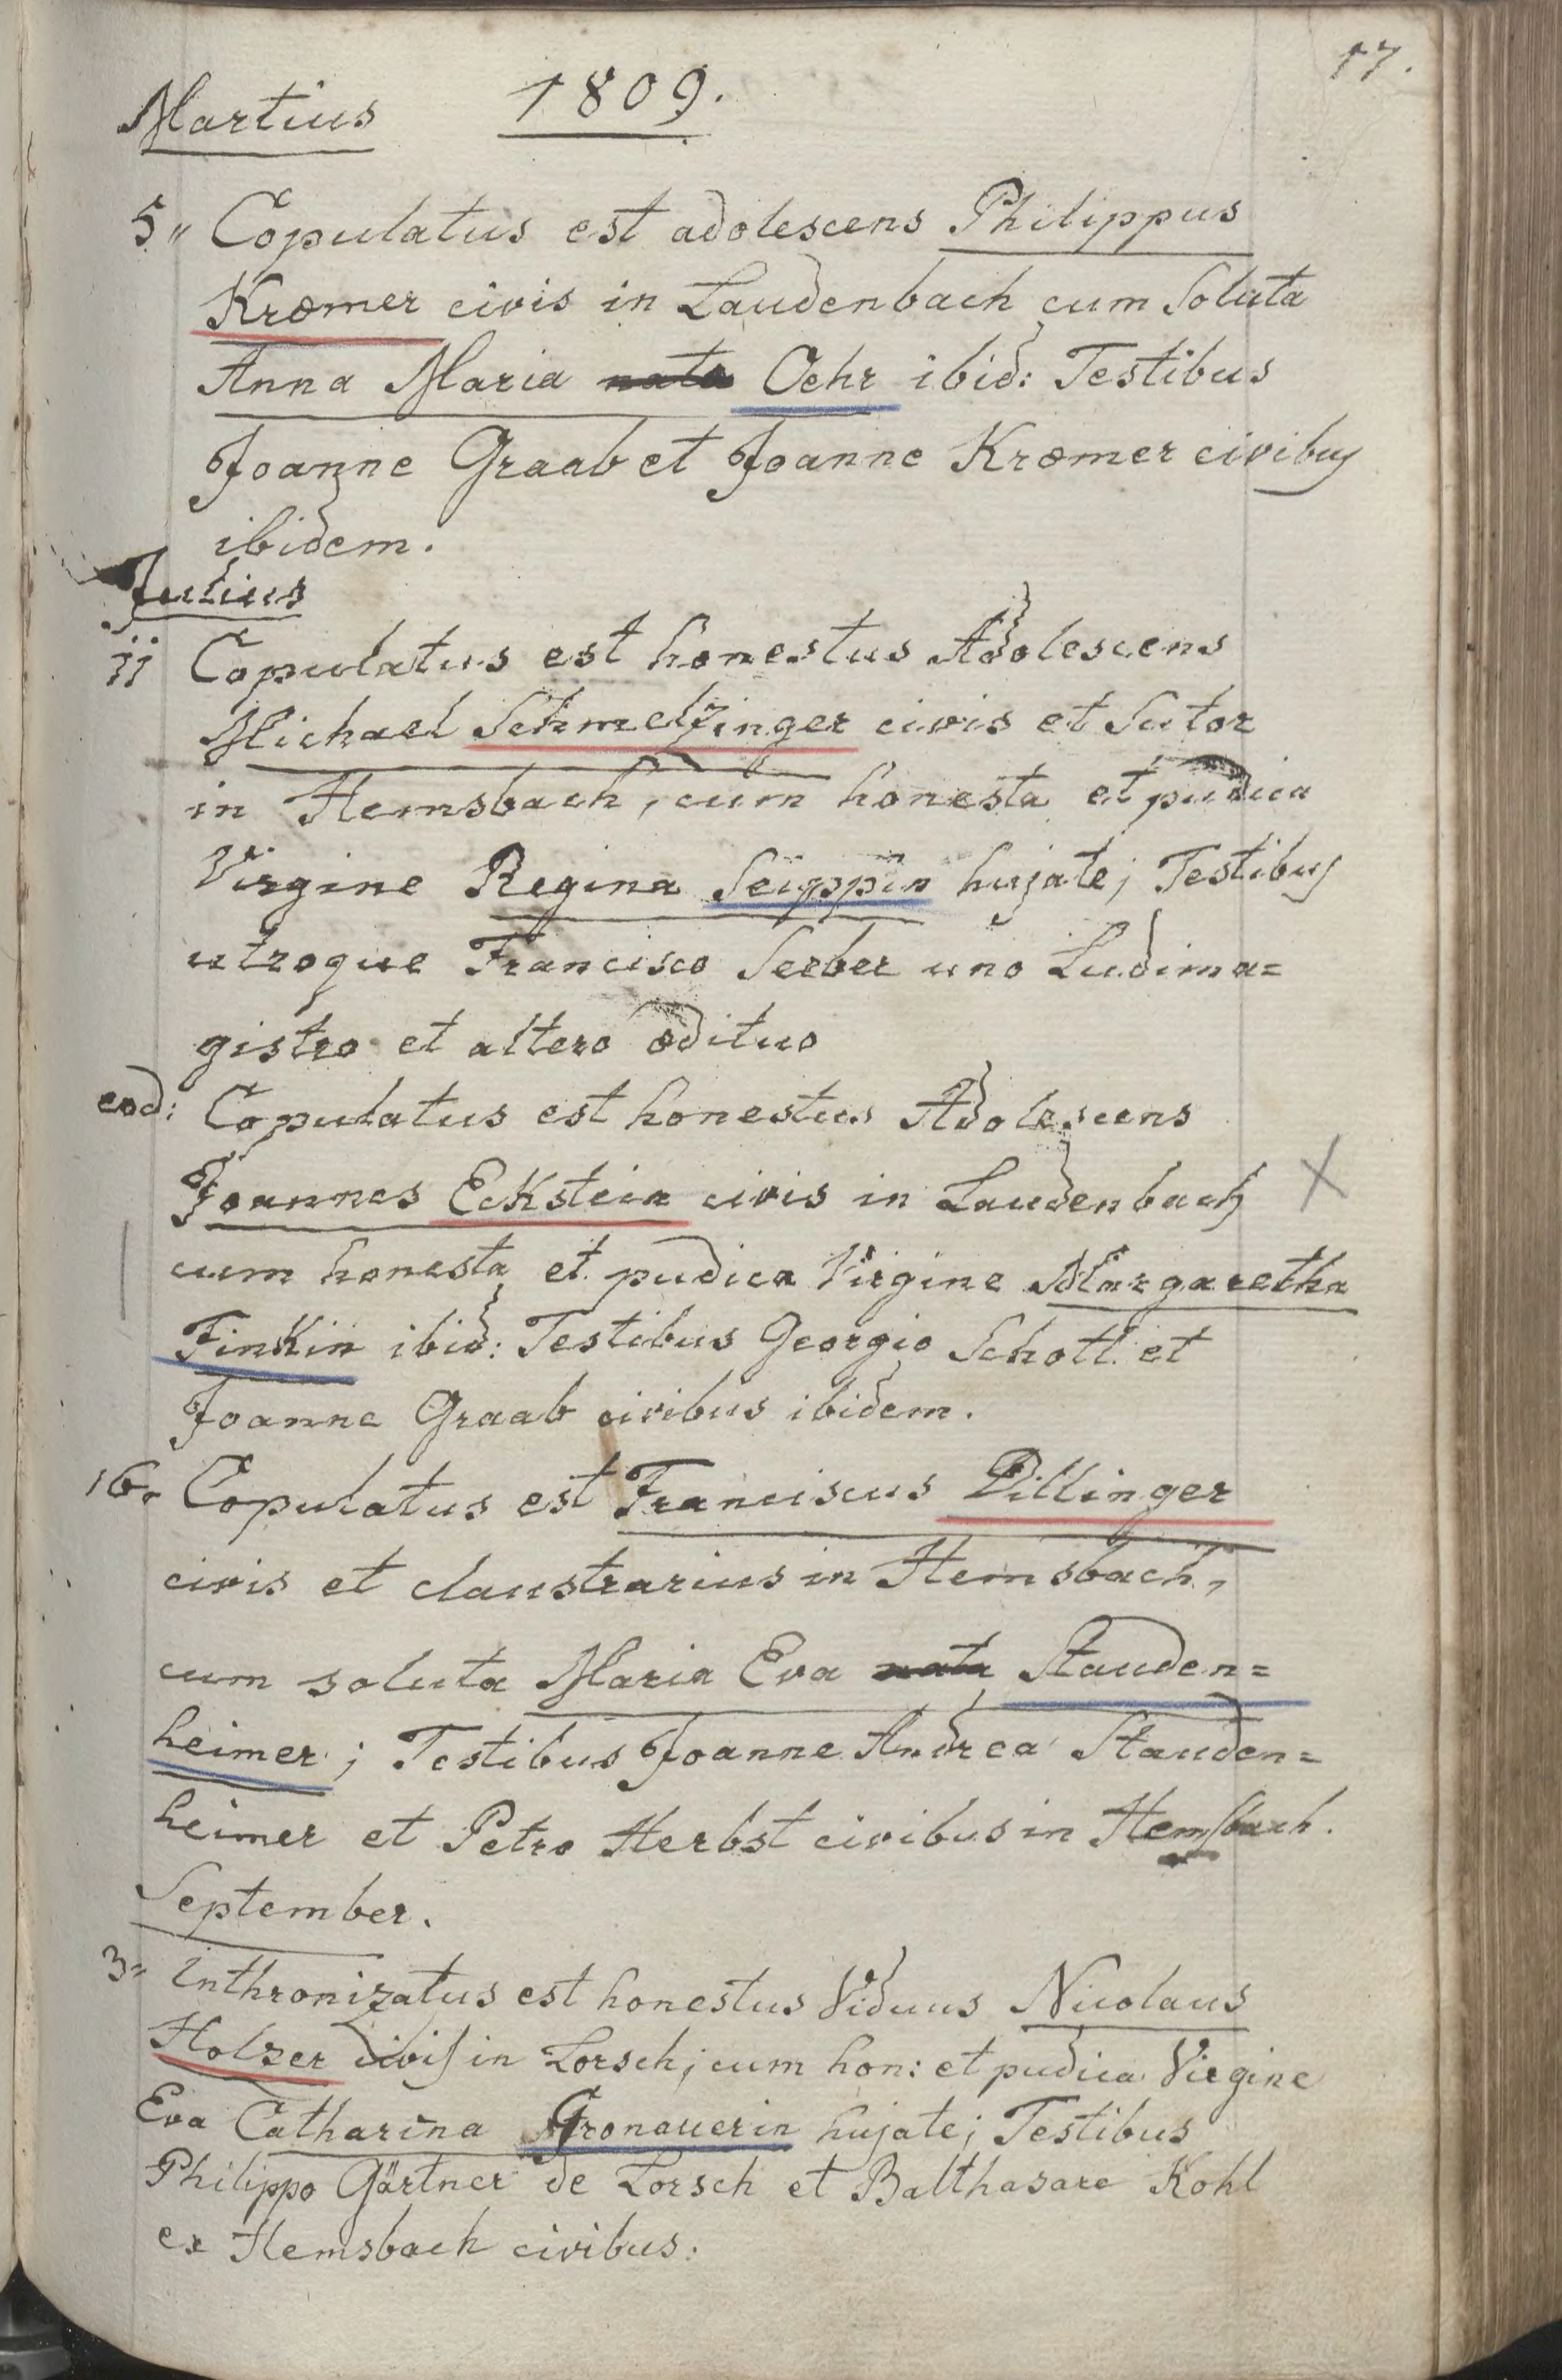 17.
Martius 1809.
5. Copulatus est adolescens Philippus
Kræmer civis in Laudenbach cum Soluta
Anna Maria nata Oehr ibid: Testibus
Joanne Graab et Joanne Kræmer civibus
ibidem.
Julius
11 Copulatus est honestus Adolescens
Michael Schmelzinger civis et Sutor
in Hemsbach, cum honesta et pudica
Virgine Regina Seippin hujate; Testibus
utroque Francisco Serber uno Ludima=
gistro et altero ædituo
eod: Copulatus est honestus Adolescens
Joannes Eckstein civis in Laudenbach
cum honesta et pudica Virgine Margaretha
Finkin ibid: Testibus Georgio Schott et
Joanne Graab civibus ibidem.
16. Copulatus est Franciscus Dillinger
civis et claustrarius in Hemsbach,
cum soluta Maria Eva nata Stauden=
heimer; Testibus Joanne Andrea Stauden=
heimer et Petro Herbst civibus in Hemsbach.
September.
3. Inthronizatus est honestus Viduus Nicolaus
Holzer civis in Lorsch; cum hon: et pudica Virgine
Eva Catharina Gronauerin hujate; Testibus
Philippo Gärtner de Lorsch et Balthasare Kohl
ex Hemsbach civibus: